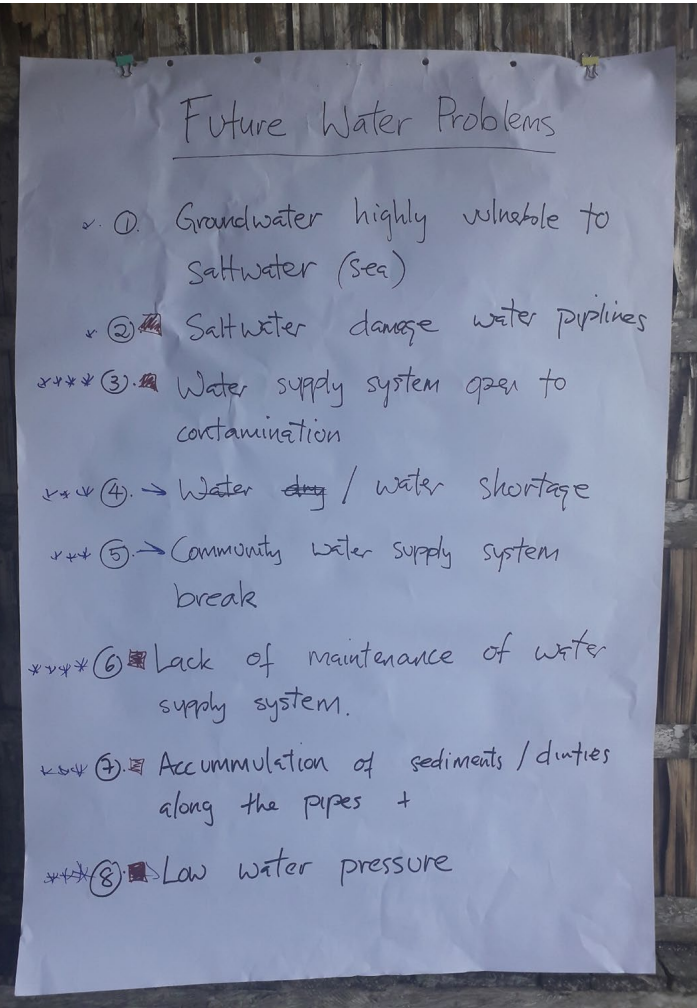 Future Water Problems
* ①. Groundwater highly vulnerable to
saltwater (sea)
* ② Saltwater damage water piplines
**** ③. Water supply system open to
contamination
*** ④. → Water dry / water shortage
*** ⑤. → Community water supply system
break
**** ⑥ Lack of maintenance of water
supply system.
*** ⑦. Accummulation of sediments / dirties
along the pipes +
*** ⑧. Low water pressure